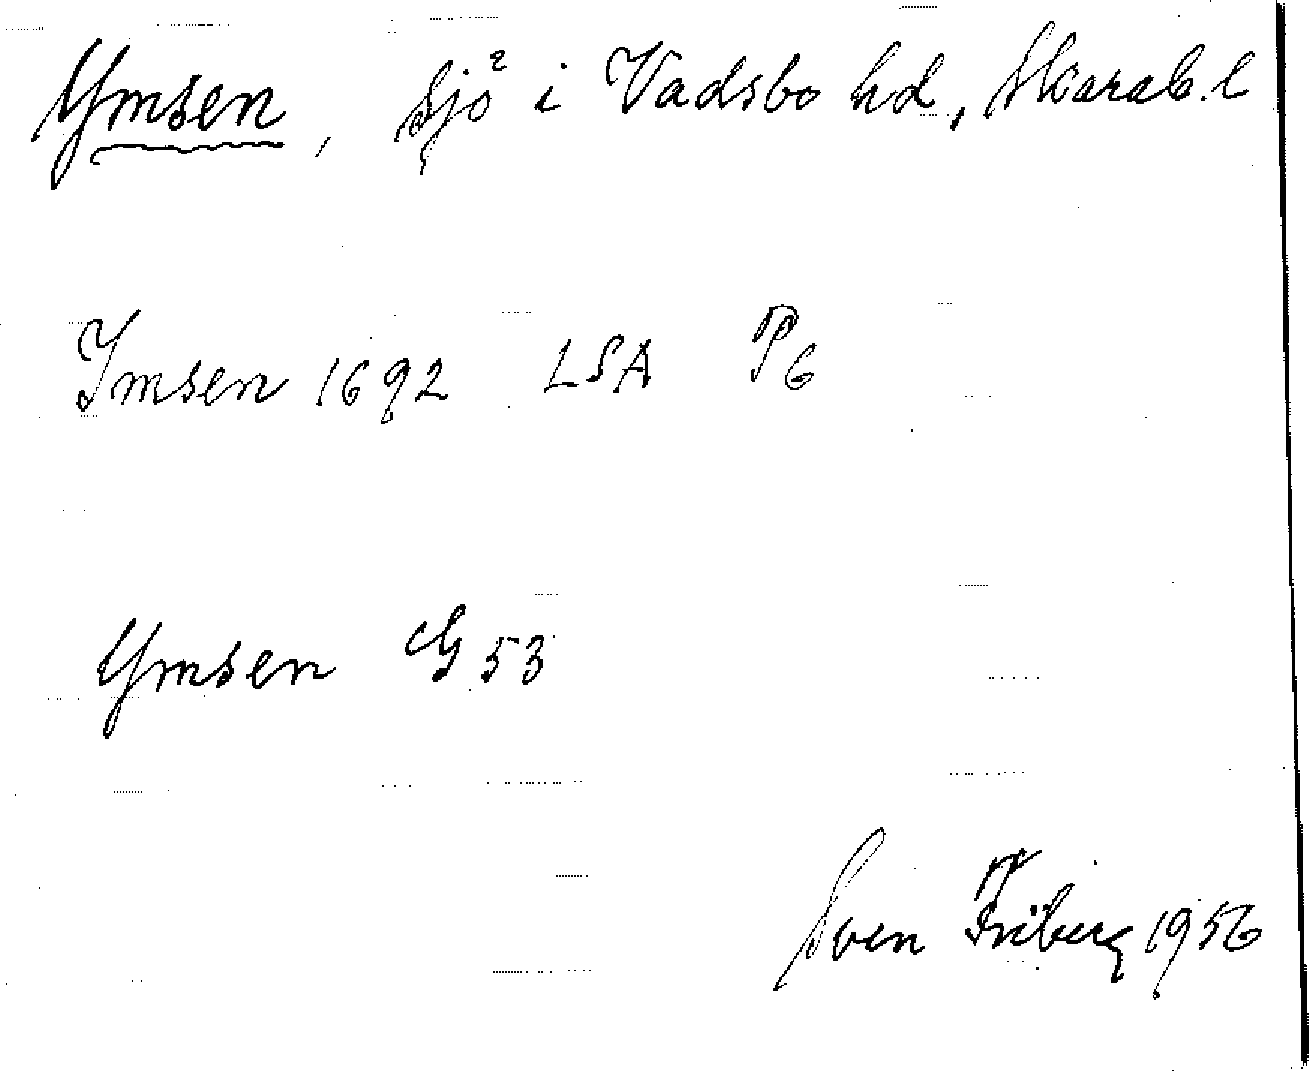 Ymsen, Sjö i Vadsbo hd, Skarab. l
Imsen 1692 LSA P6
Ymsen G 53
Sven Friberg 1956